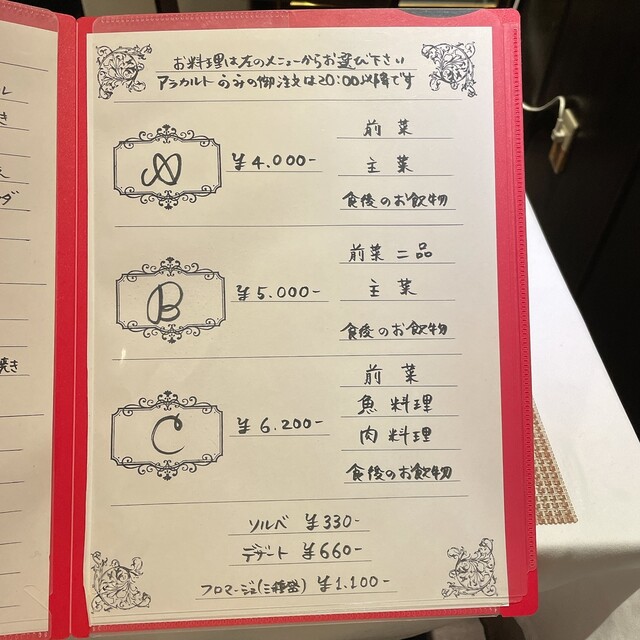 お料理は左のメニューからお選び下さい
アラカルトのみの御注文は20:00以降です
A
¥4.000-
前菜
主菜
食後のお飲物
B
¥5.000-
前菜二品
主菜
食後のお飲物
C
¥6.200-
前菜
魚料理
肉料理
食後のお飲物
ソルベ ¥330-
デザート ¥660-
フロマージュ(三種盛) ¥1.100-
ル
き
ダ
焼き